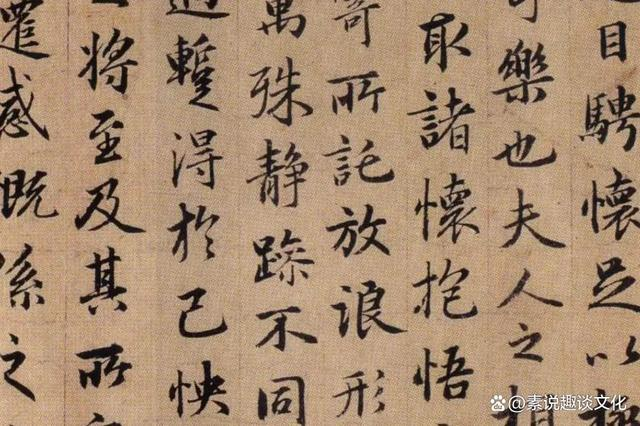 目騁懷足以極
樂也夫人之相
取諸懷抱悟
寄所託放浪形
萬殊静躁不同
遇蹔得於己怏
將至及其所
遷感慨係之
@素说趣谈文化